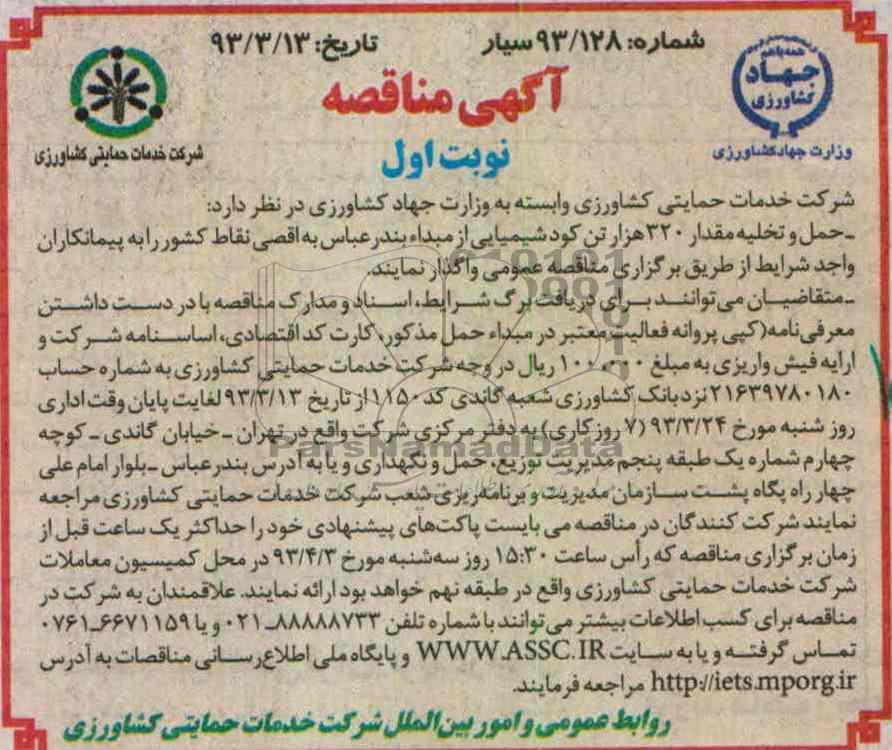 شماره: ۹۳/۱۲۸سیار
تاریخ: ۹۳/۳/۱۳
همه با هم
جهاد
کشاورزی
وزارت جهادکشاورزی
شرکت خدمات حمایتی کشاورزی
آگهی مناقصه
نوبت اول
شرکت خدمات حمایتی کشاورزی وابسته به وزارت جهاد کشاورزی در نظر دارد:
-حمل و تخلیه مقدار ۳۲۰ هزار تن کود شیمیایی از مبداء بندرعباس به اقصی نقاط کشور را به پیمانکاران
واجد شرایط از طریق برگزاری مناقصه عمومی واگذار نمایند.
-متقاضیان می‌توانند برای دریافت برگ شرایط، اسناد و مدارک مناقصه با در دست داشتن
معرفی‌نامه(کپی پروانه فعالیت معتبر در مبداء حمل مذکور، کارت کد اقتصادی، اساسنامه شرکت و
ارایه فیش واریزی به مبلغ ۱۰۰۰۰۰۰ ریال در وجه شرکت خدمات حمایتی کشاورزی به شماره حساب
۲۱۶۳۹۷۸۰۱۸۰ نزد بانک کشاورزی شعبه گاندی کد ۱۱۵۰ از تاریخ ۹۳/۳/۱۳ لغایت پایان وقت اداری
روز شنبه مورخ ۹۳/۳/۲۴ (۷ روز کاری) به دفتر مرکزی شرکت واقع در تهران -خیابان گاندی -کوچه
چهارم شماره یک طبقه پنجم مدیریت توزیع، حمل و نگهداری و یا به آدرس بندرعباس -بلوار امام علی
چهار راه پگاه پشت سازمان مدیریت و برنامه‌ریزی شعب شرکت خدمات حمایتی کشاورزی مراجعه
نمایند شرکت کنندگان در مناقصه می بایست پاکت‌های پیشنهادی خود را حداکثر یک ساعت قبل از
زمان برگزاری مناقصه که رأس ساعت ۱۵:۳۰ روز سه‌شنبه مورخ ۹۳/۴/۳ در محل کمیسیون معاملات
شرکت خدمات حمایتی کشاورزی واقع در طبقه نهم خواهد بود ارائه نمایند. علاقمندان به شرکت در
مناقصه برای کسب اطلاعات بیشتر می‌توانند با شماره تلفن ۸۸۸۸۸۷۳۳-۰۲۱ و یا ۶۶۷۱۱۵۹-۰۷۶۱
تماس گرفته و یا به سایت WWW.ASSC.IR و پایگاه ملی اطلاع‌رسانی مناقصات به آدرس
http://iets.mporg.ir مراجعه فرمایند.
روابط عمومی و امور بین‌الملل شرکت خدمات حمایتی کشاورزی
ParsNamadData